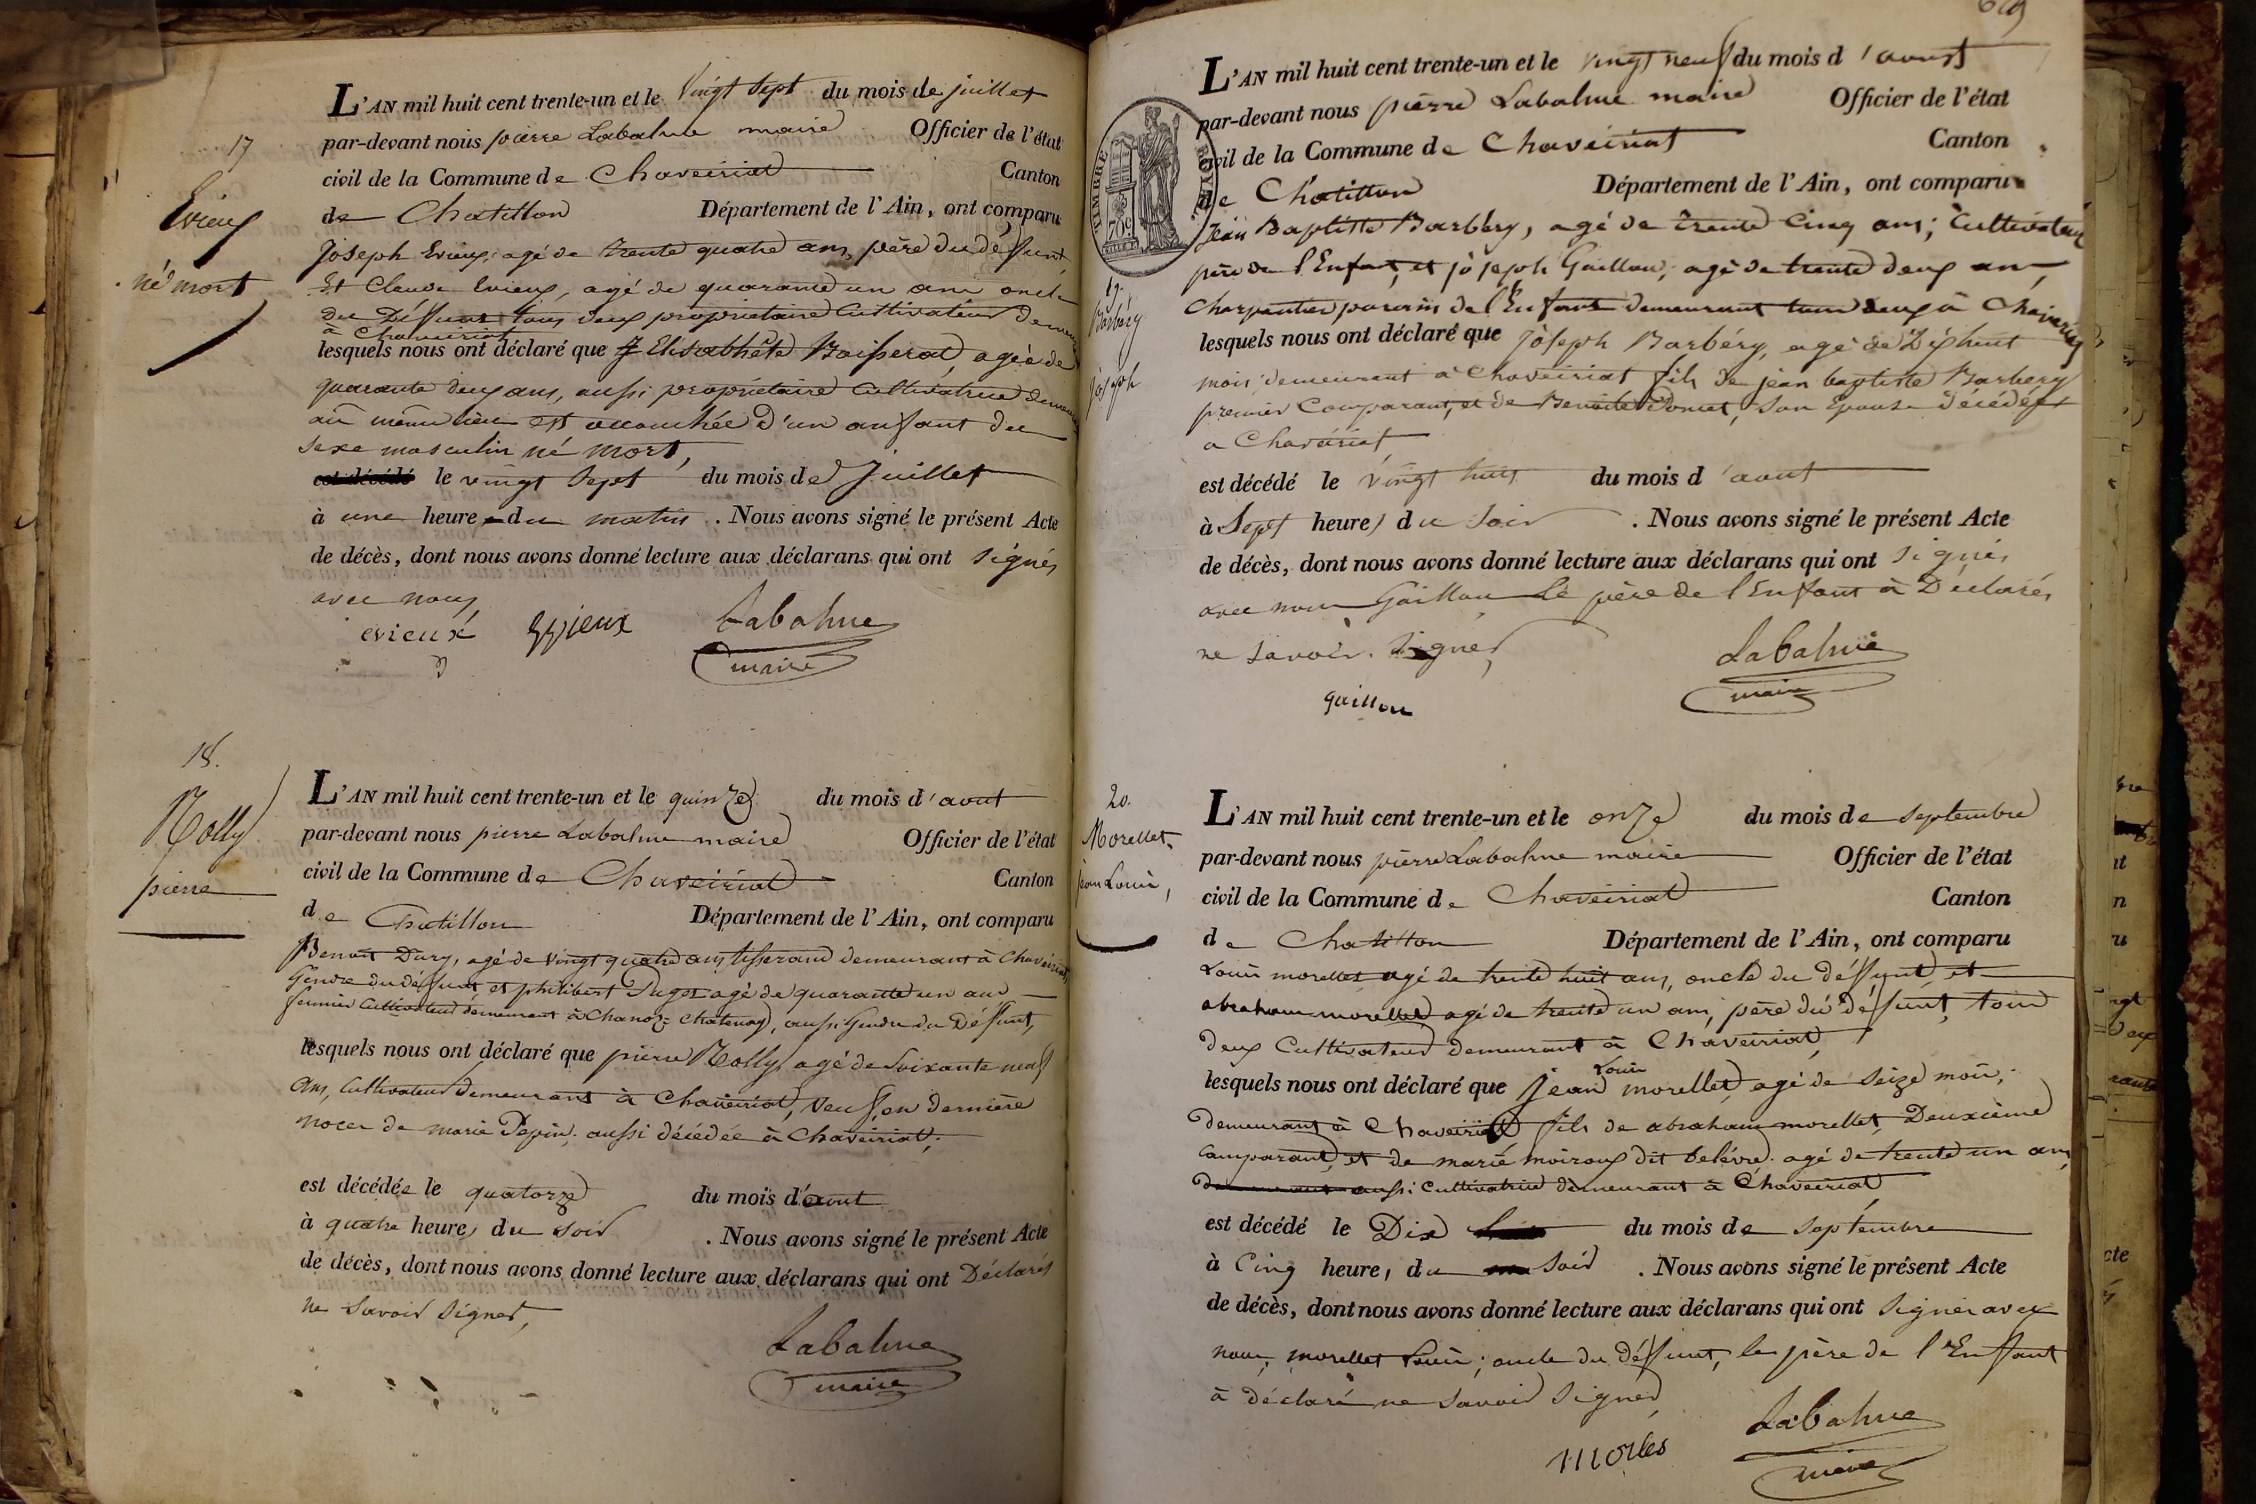 17
Evieux
né mort
L'AN mil huit cent trente-un et le vingt sept du mois de juillet
par-devant nous pierre Labalme maire Officier de l'état
civil de la Commune de Chaveiriat Canton
de Chatillon Département de l'Ain, ont comparu
Joseph Evieux, agé de trente quatre ans, père du déffunt,
Et Claude Evieux, agé de quarante un ans oncle
du Déffunt tous deux proprietaire Cultivateur
à Chaveiriat
lesquels nous ont déclaré que Elisabhète Boisserat, agée de
quarante deux ans, aussi propriétaire Cultivatrice
au même lieu est accouchée d'un anfant du
sexe masculin né mort,
est décédé le vingt Sept du mois de Juillet
à une heure du matin . Nous avons signé le présent Acte
de décès, dont nous avons donné lecture aux déclarans qui ont signés
avec nous,
evieux Labalme
maire
18.
Molly
pierre
L'AN mil huit cent trente-un et le quinze du mois d'avout
par-devant nous pierre Labalme maire Officier de l'état
civil de la Commune de Chaveiriat Canton
de Chatillon Département de l'Ain, ont comparu
Benoit Dury, agé de vingt quatre ans tisserand demeurant à Chaveiriat,
Gendre du déffunt et philibert Puget agé de quarante un ans
fermier Cultivateur demeurant à Chanoz-Chatenay, aussi Gendre du Déffunt,
lesquels nous ont déclaré que pierre Molly, agé de Soixante neuf
ans, Cultivateur demeurant à Chaveiriat, veuf, en dernière
noces de marie Pepin, aussi décédée à Chaveiriat,
est décédée le quatorze du mois d'avout
à quatre heures du soir . Nous avons signé le présent Acte
de décès, dont nous avons donné lecture aux déclarans qui ont Déclarés
ne Savoir signer,
Labalme
maire
TIMBRE ROYAL
19.
Barbéry
Joseph
L'AN mil huit cent trente-un et le vingt neuf du mois d'avout
par-devant nous pierre Labalme maire Officier de l'état
civil de la Commune de Chaveiriat Canton
de Chatillon Département de l'Ain, ont comparu
Jean Baptiste Barbéry, agé de trente Cinq ans, Cultivateur
père de l'Enfant, et joseph Gaillon, agé de trente deux ans,
Charpentier parrain de l'Enfant demeurant tous deux à Chaveiriat
lesquels nous ont déclaré que Joseph Barbéry, agé de Dixhuit
mois demeurant à Chaveiriat fils de jean baptiste Barbery
premier Comparant, et de Benoite Poncet, Son Epouse décédée
a Chaveiriat
est décédé le vingt huit du mois d'avout
à Sept heures du Soir . Nous avons signé le présent Acte
de décès, dont nous avons donné lecture aux déclarans qui ont signés
avec nous Gaillon Le père de l'Enfant à Déclarés
ne savoir signer,
Labalme
maire
gaillon
20.
Morellet
jean Louis,
L'AN mil huit cent trente-un et le onze du mois de septembre
par-devant nous pierre Labalme maire Officier de l'état
civil de la Commune de Chaveiriat Canton
de Chatillon Département de l'Ain, ont comparu
Louis morellet agé de trente huit ans, oncle du déffunt, et
abraham morellet agé de trente un ans, père du déffunt, tous
deux Cultivateur demeurant à Chaveiriat,
Louis
lesquels nous ont déclaré que jean morellet, agé de Seize mois,
demeurant à Chaveiriat fils de abraham morellet, Deuxième
Comparant, et de marie moiroux dit belévre agé de trente un ans,
aussi Cultivatrice demeurant à Chaveiriat
est décédé le Dix du mois de septembre
à Cinq heures du Soir . Nous avons signé le présent Acte
de décès, dont nous avons donné lecture aux déclarans qui ont signer avec
nous, morellet Louis, oncle du déffunt, le père de l'Enffant
à déclaré ne savoir signer,
Labalme
maire